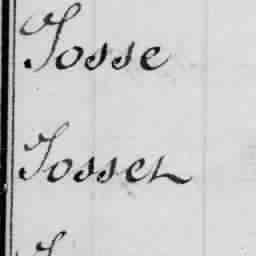 Josse
Josset